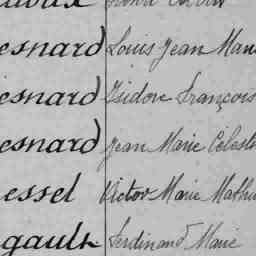 esnard Louis Jean Marie
esnard Isidore François
esnard Jean Marie Célest
essel Victor Marie Mathu
gault Ferdinand Marie